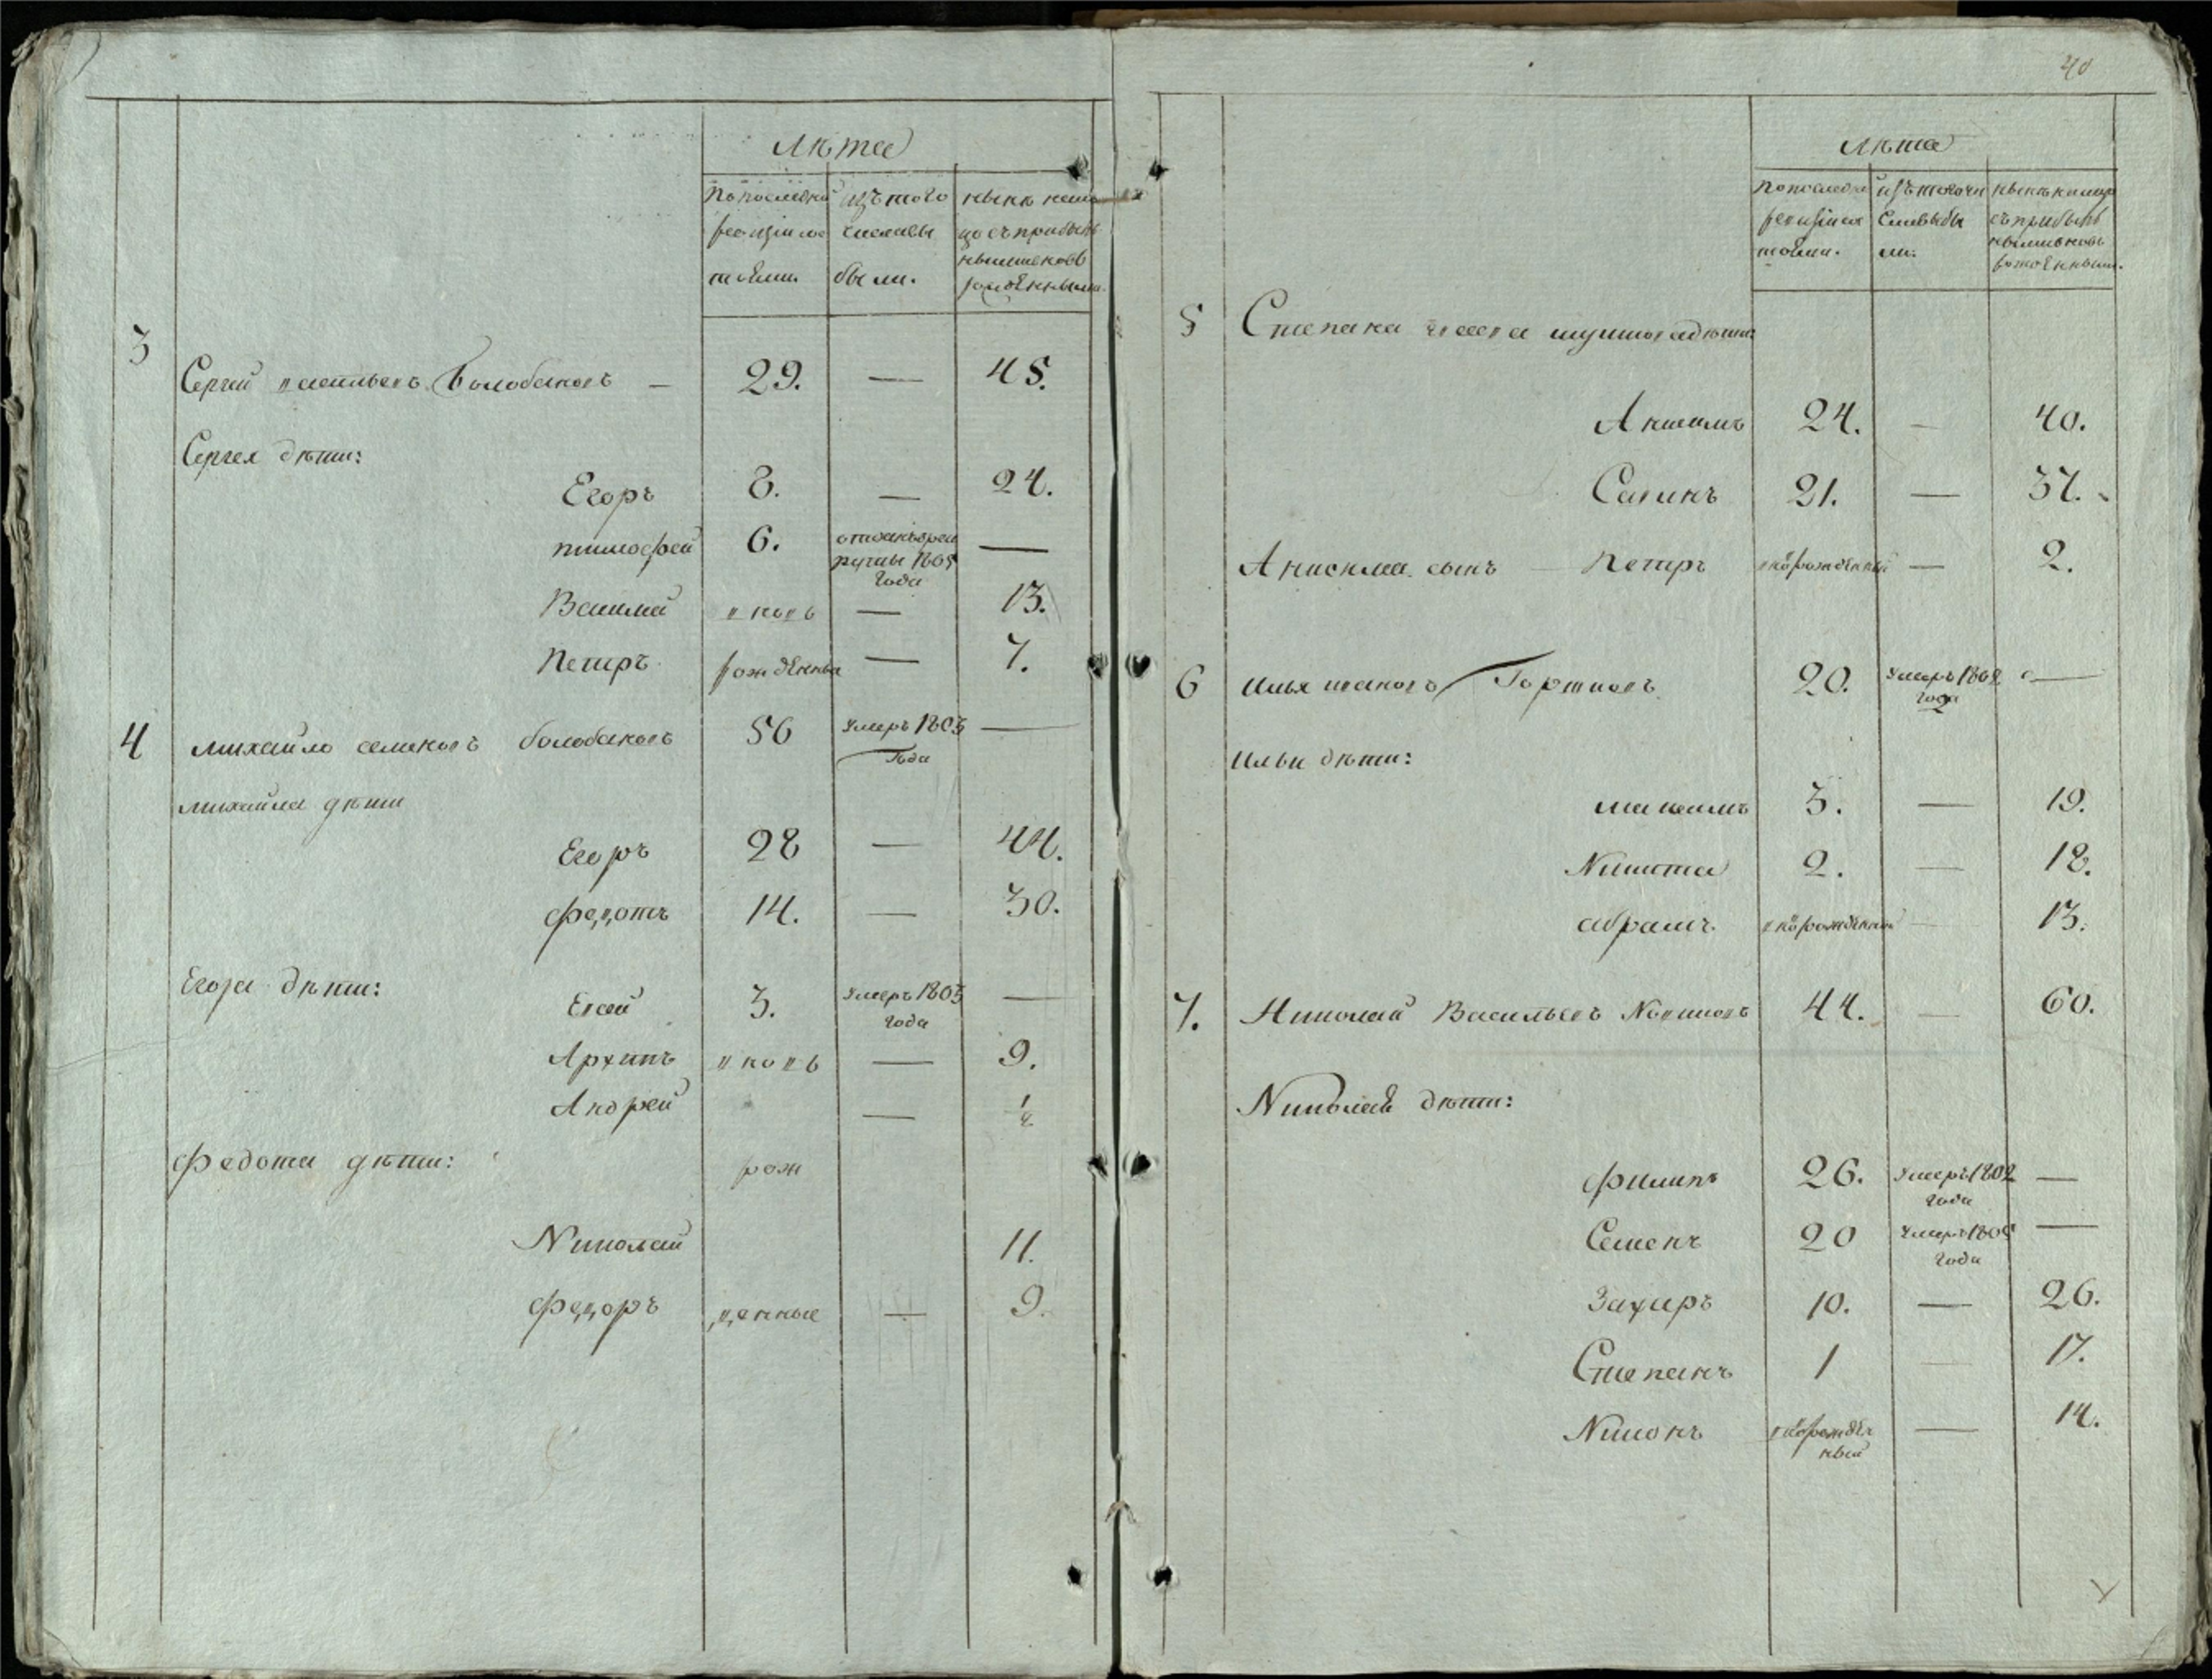 Лѣта
По последней ревизіи состояли.
изъ того числа выбыли.
нынѣ на лицо съ прибылыми и новорожденными.
3
Сергей васильевъ Болобановъ — 29. — 45.
Сергея дѣти:
Егоръ 8. — 24.
тимофей 6. отданъ в рекруты 1805 года —
Василей вновь — 13.
Петръ рожденныя — 7.
4 михайло семеновъ болобановъ 56 умеръ 1803 Года —
михайла дѣти
Егоръ 28 — 44.
федотъ 14. — 30.
Егора дѣти:
Евсей 3. умеръ 1803 года —
Архипъ вновь — 9.
Андрей — 1/2
федота дѣти: рож
Николай 11.
федоръ денные — 9.
40
Лѣта
По последней ревизіи состояли.
изъ того числа выбыли.
нынѣ на лицо съ прибылыми и новорожденными.
5 Степана дѣти:
Анисимъ 24. — 40.
Савинъ 21. — 37.
Анисима сынъ — Петръ новорожденный — 2.
6 Илья ивановъ Гортновъ 20. умеръ 1802 года —
Ильи дѣти:
максимъ 3. — 19.
Никита 2. — 18.
абрамъ новорожденный — 13.
7. Николай Васильевъ 44. — 60.
Николая дѣти:
филипъ 26. умеръ 1802 года —
Семенъ 20 умеръ 1805 года —
Захаръ 10. — 26.
Степанъ 1 — 17.
Никонъ новорожденный — 14.